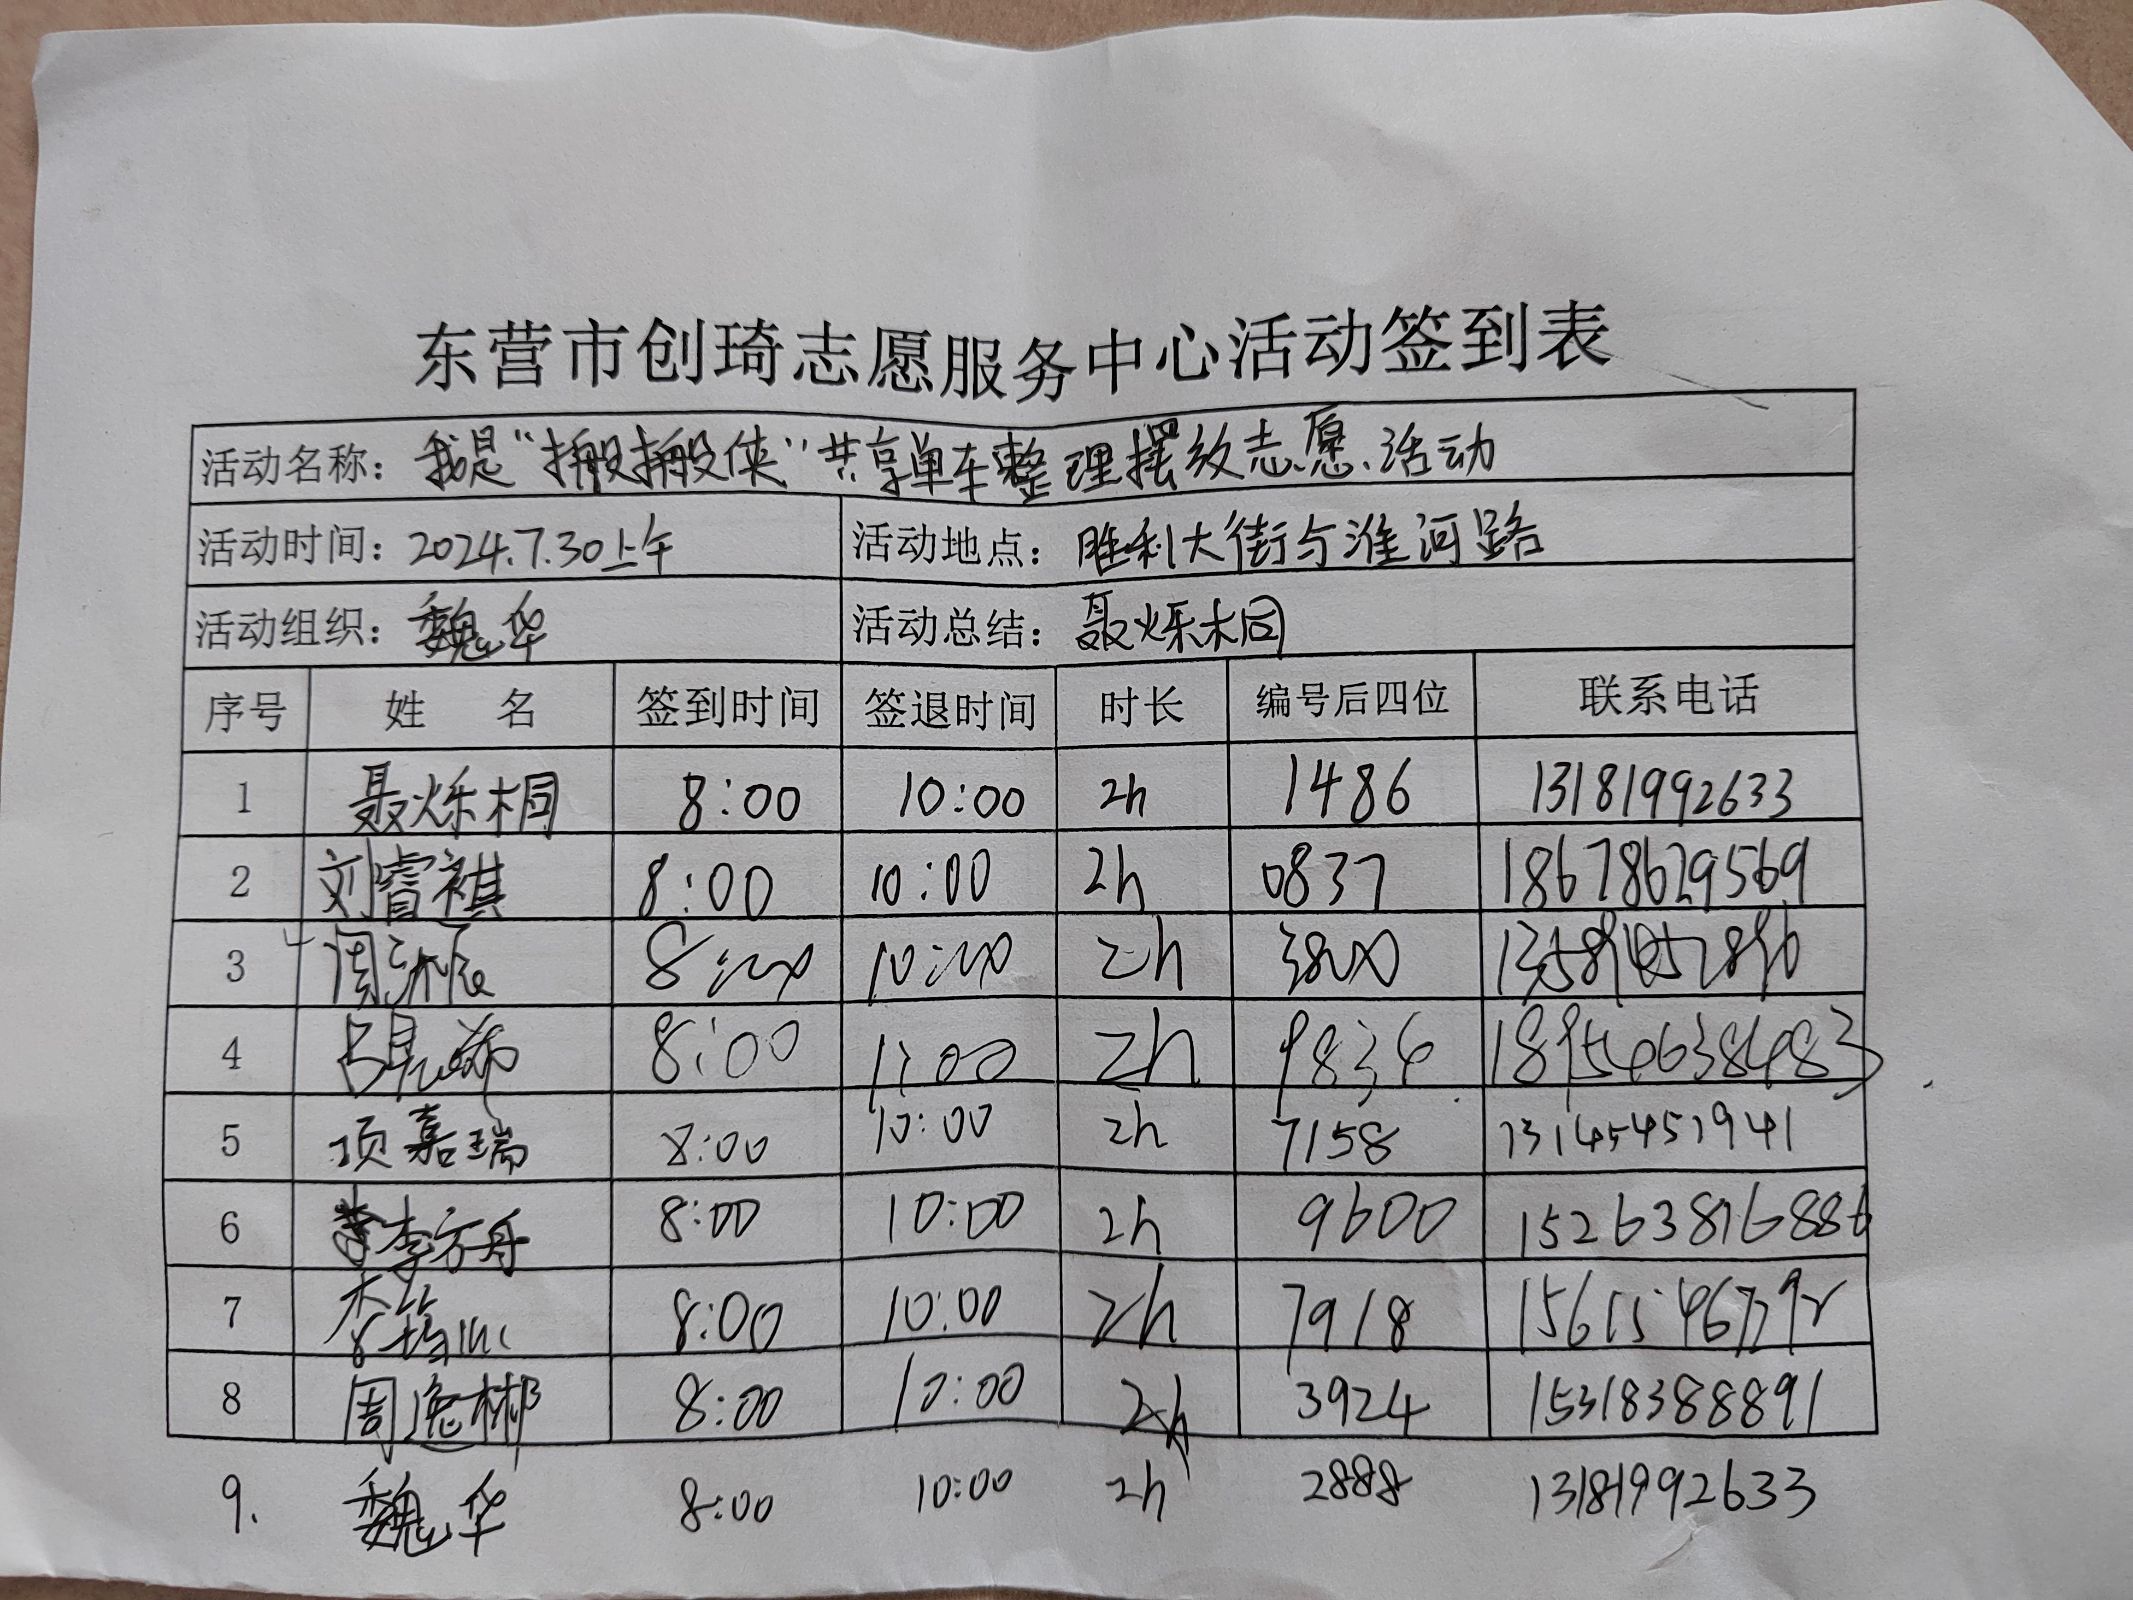 东营市创琦志愿服务中心活动签到表
活动名称：我是“搬搬侠”共享单车整理摆放志愿活动
活动时间：2024.7.30上午 活动地点：胜利大街与淮河路
活动组织：魏华 活动总结：聂烁桐
序号 姓 名 签到时间 签退时间 时长 编号后四位 联系电话
1 聂烁桐 8:00 10:00 2h 1486 13181992633
2 刘睿祺 8:00 10:00 2h 0837 18678629569
3 8:00 10:00 2h 3800
4 8:00 2h 9834
5 项嘉瑞 8:00 10:00 2h 7158
6 李方舟 8:00 10:00 2h 9600 15263816886
7 8:00 10:00 2h 7918
8 周逸彬 8:00 10:00 2h 3924 15318388891
9. 魏华 8:00 10:00 2h 2888 13181992633